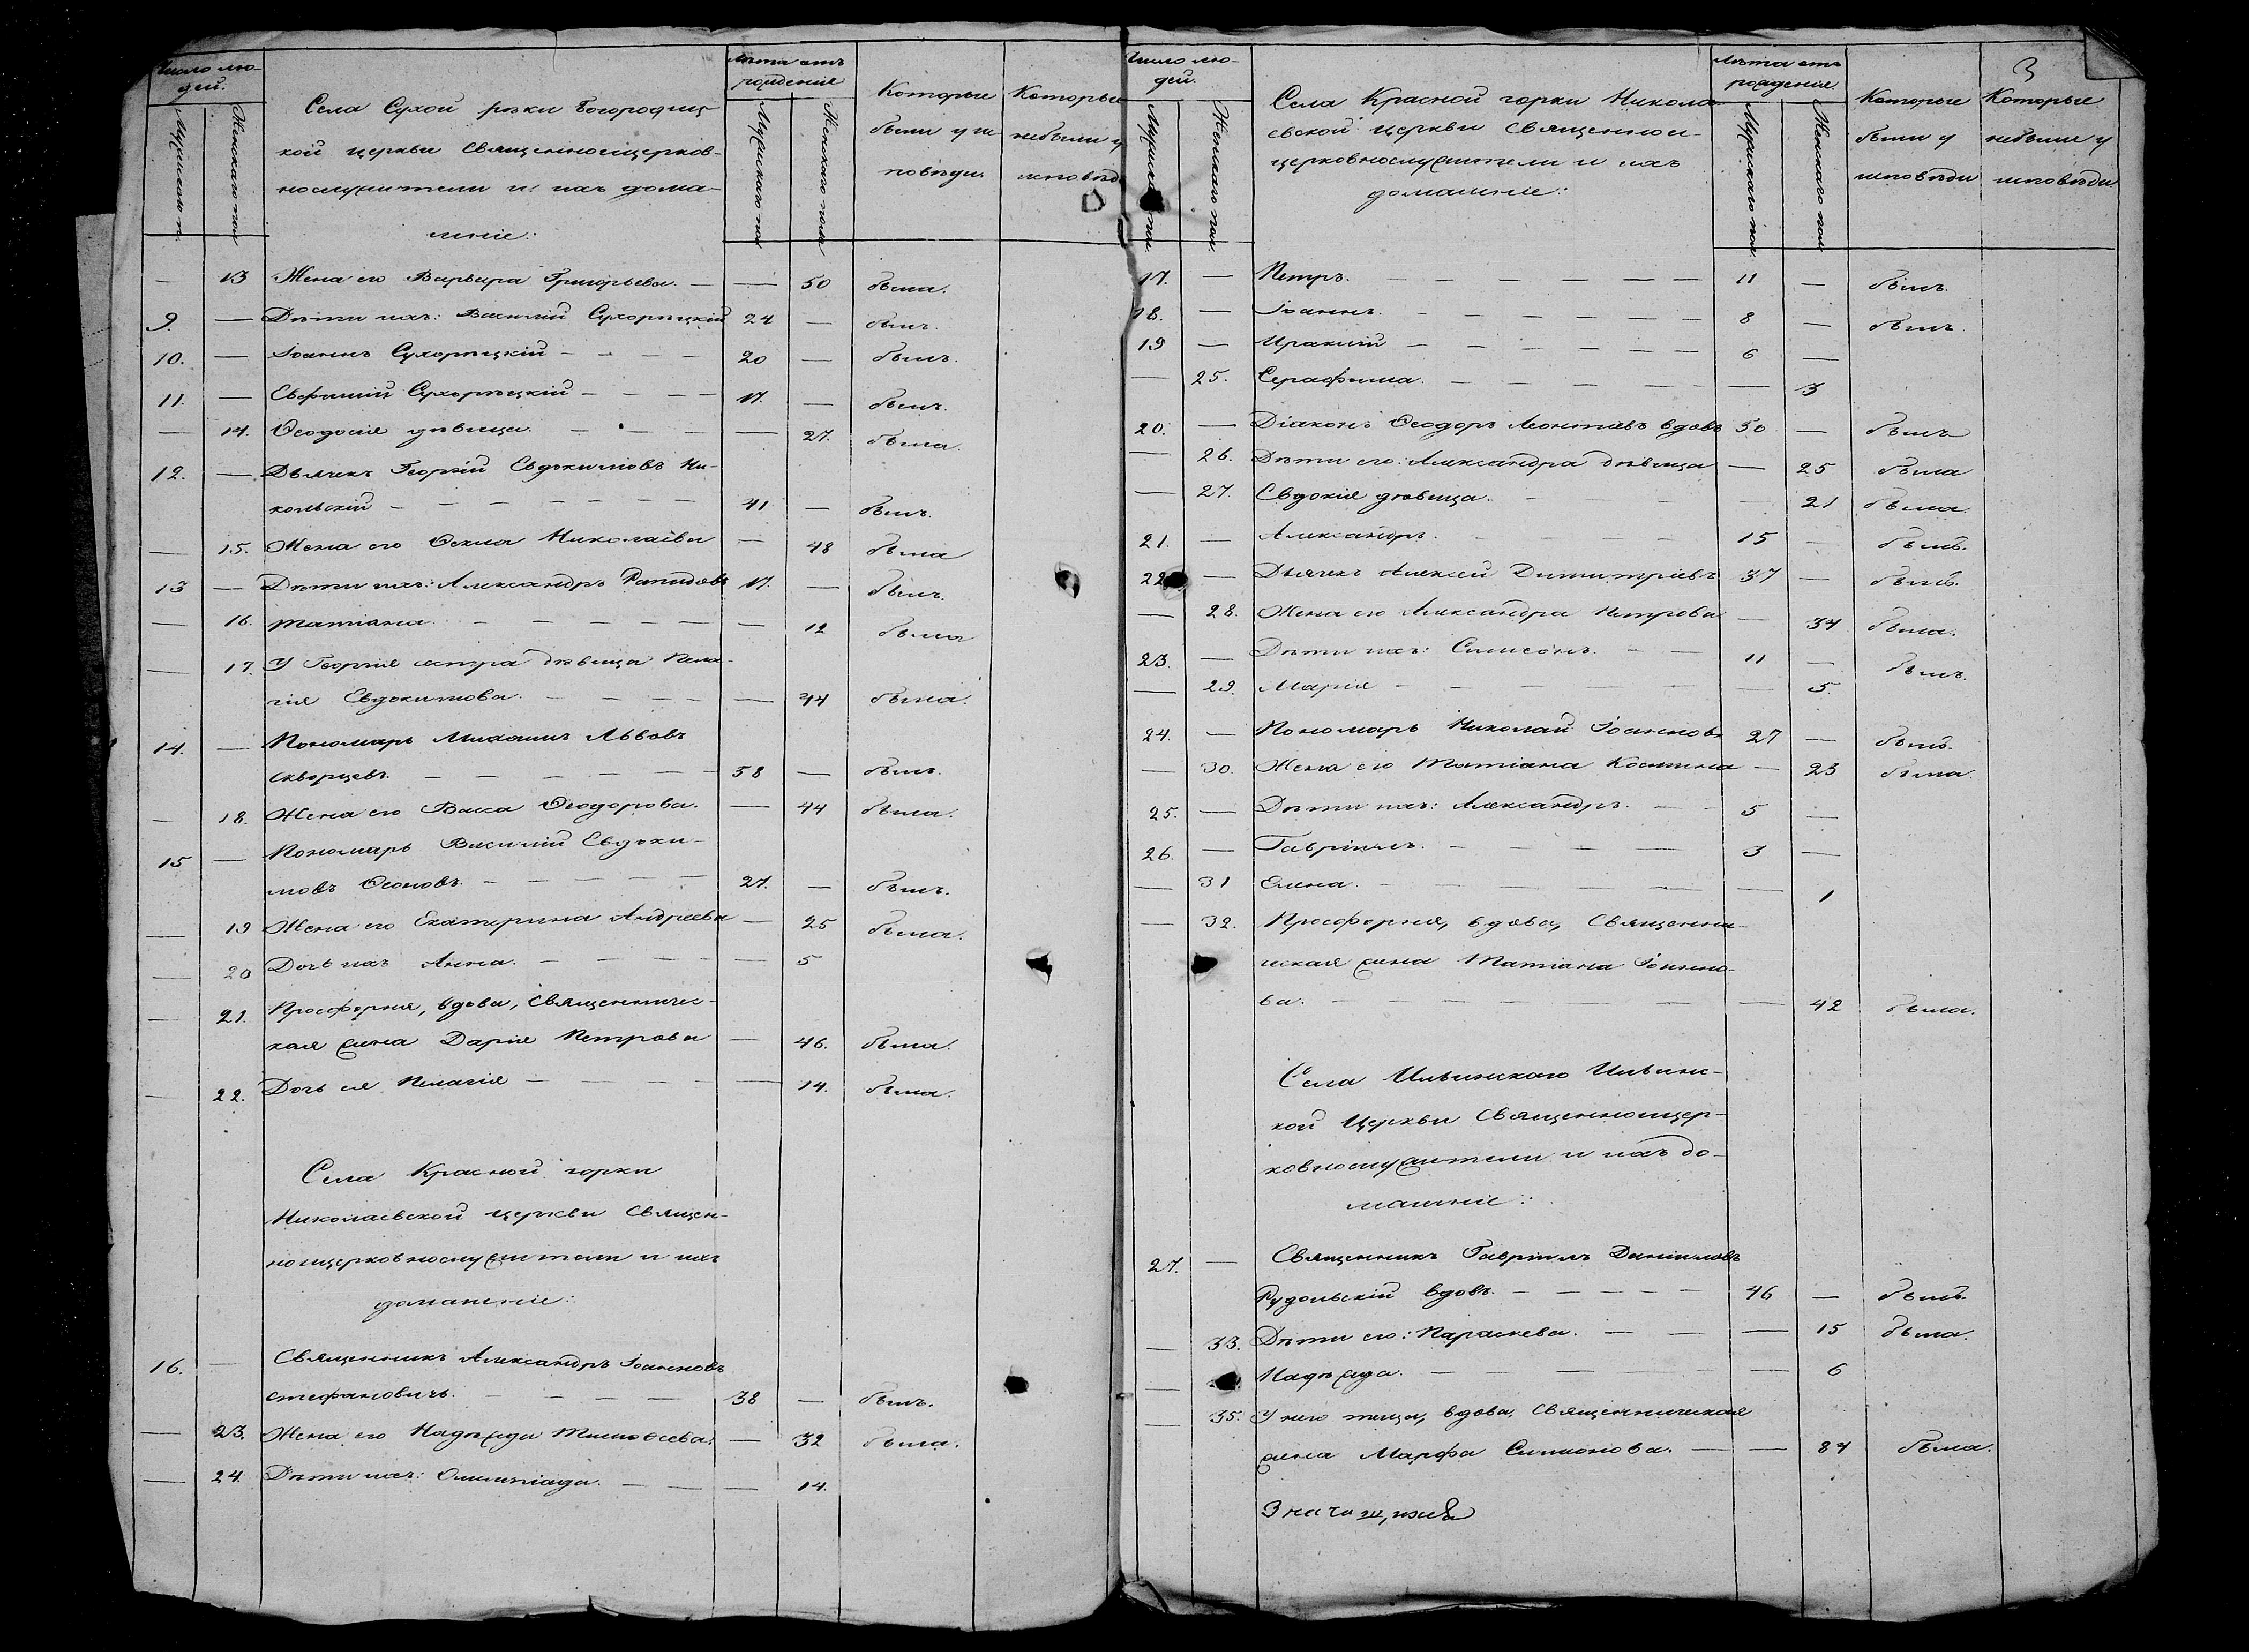 Число лю-
дей.
Мужескаго п.
Женскаго пол
Села Сухой рѣки Богородиц-
кой церкви Священноицерков-
нослужители и ихъ дома-
шніе:
Лѣта отъ
рожденія
Мужескаго пол
Женскаго пола
Которые
были у ис-
повѣди.
Которые
небыли у
исповѣд
— 13 Жена его Варвара Григорьева. — — 50 была.
9. — Дѣти ихъ: Василій Сухорѣцкій 24 — былъ.
10. — Іоаннъ Сухорѣцкій — — — — 20 — былъ.
11. — Евфимій Сухорѣцкій — — — — 17. — былъ.
— 14. Ѳеодосія дѣвица. — — — — 27. была.
12. — Дьячекъ Георгій Евдокимовъ Ни-
кольскій — — — — — — 41 — былъ.
— 15. Жена его Ѳекла Николаева — 48 была
13 — Дѣти ихъ: Александръ 17. — былъ.
— 16. Татіана — — — — — — 12 была
— 17. У Георгія сестра дѣвица Пела-
гія Евдокимова. — — — — — 44 была.
14. — Пономарь Михаилъ Львовъ
Скворцевъ. — — — — — 58 — былъ.
— 18. Жена его Васса Ѳеодорова. — 44 была.
15 — Пономарь Василій Евдоки-
мовъ — — — — — 27. — былъ.
— 19 Жена его Екатерина Андреева — 25 была.
— 20 Дочь ихъ Анна. — — — — — 5
— 21. Просфорня, вдова, Священничес-
кая жена Дарія Петрова — 46. была.
— 22. Дочь ея Пелагія — — — — — 14. была.
Села Красной горки
Николаевской церкви Священ-
ноицерковнослужители и ихъ
домашніе:
16. — Священникъ Александръ Іоанновъ
Стефановичъ. — — — — 38 — былъ.
— 23. Жена его Надежда Тимоѳеева. — 32 была.
— 24. Дѣти ихъ: Олимпіада. — — — 14.
3
Число лю-
дей.
Мужескаго пол.
Женскаго пол.
Села Красной горки Никола-
евской церкви Священнои-
церковнослужители и ихъ
домашніе:
Лѣта отъ
рожденія
Мужескаго пол
Женскаго пол
Которые
были у
исповѣди
Которые
небыли у
исповѣди.
17. — Петръ. — — — — — — 11 — былъ.
18. — Іоаннъ. — — — — — — 8 — былъ.
19 — Ираклій — — — — — — 6 —
— 25. Серафима. — — — — — — 3
20. — Діаконъ Ѳеодоръ Леонтіевъ вдовъ 50 — былъ
— 26. Дѣти его: Александра дѣвица — 25 была
— 27. Евдокія дѣвица. — — — 21 была.
21. — Александръ. — — — — 15 — былъ.
22 — Дьячекъ Алексей Димитріевъ 37 — былъ.
— 28. Жена его Александра Петрова — 34 была.
23. — Дѣти ихъ: Симеонъ. — — 11 — былъ.
— 29. Марія — — — — — 5.
24. — Пономарь Николай Іоанновъ 27 — былъ.
— 30. Жена его Татіана Косьмина — 23 была.
25. — Дѣти ихъ: Александръ. — — 5 —
26. — Гавріилъ. — — — — 3 —
— 31 Елена. — — — — — — 1
— 32. Просфорня, вдова, Священни-
ческая жена Татіана Іоанно-
ва. — — — — — — — 42 была.
Села Ильинскаго Ильинс-
кой Церкви Священноицер-
ковнослужители и ихъ до-
машніе:
27. — Священникъ Гавріилъ Даніиловъ
Рудольскій вдовъ. — — — — — 46 — былъ.
— 33. Дѣти его: Параскева. — — — 15 была.
— Надежда. — — — — — — 6
— 35. У него теща, вдова, Священническая
жена Марфа Симионова. — — 84 была.